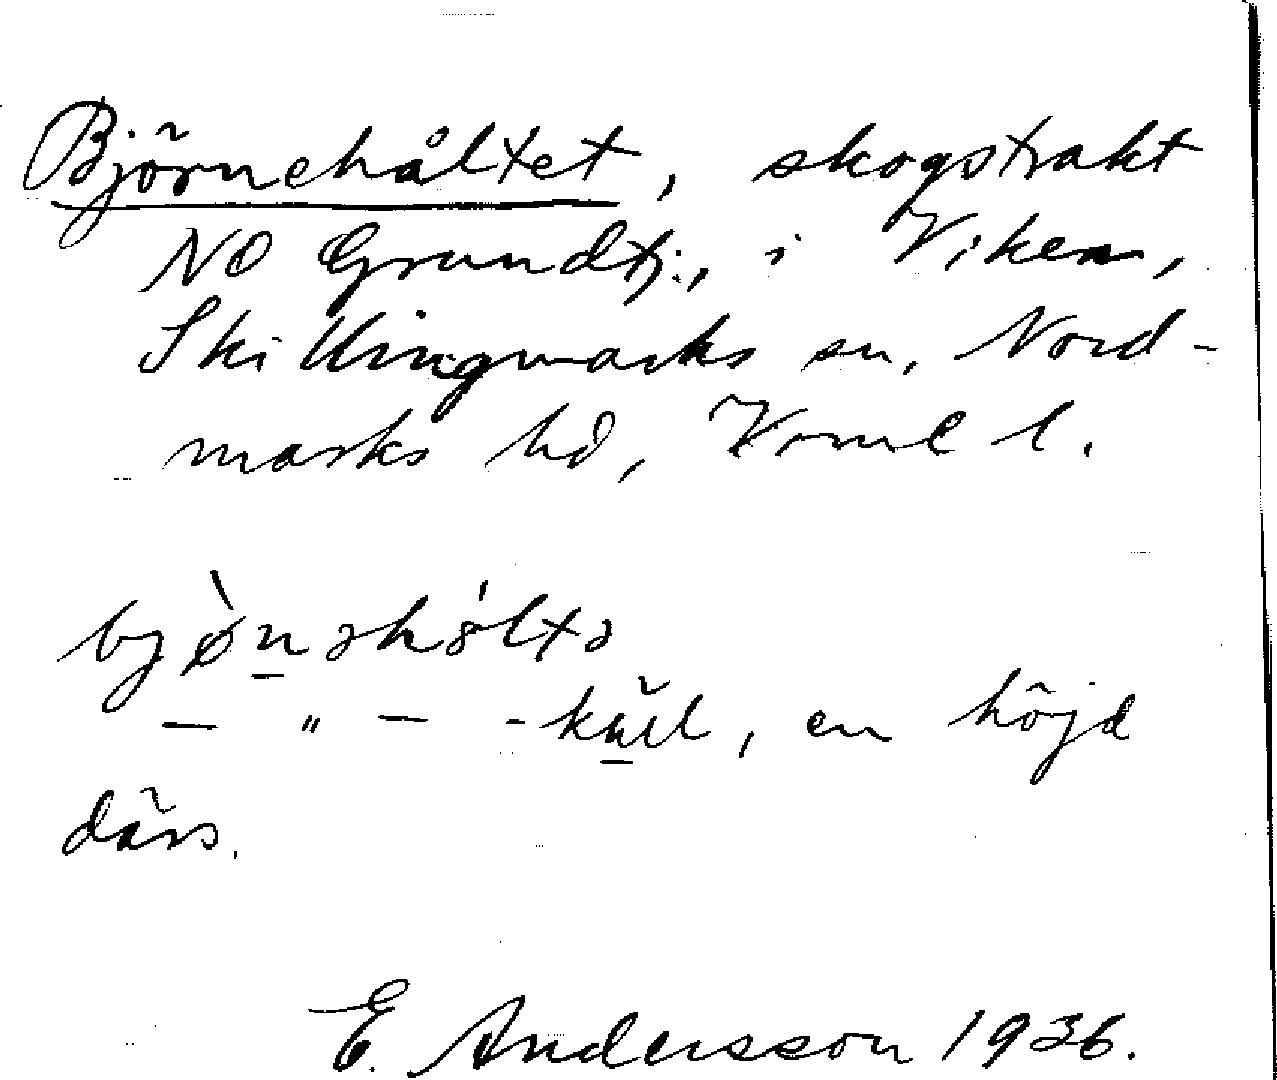 Björnehåltet, skogstrakt
NO Grundtj., i Viken,
Skillingmarks sn, Nord-
marks hd, Verml l.
bjø̀nəhåltə
— „ — -kùll, en höjd
därs.
E. Andersson 1936.